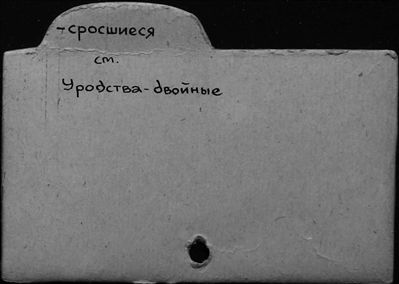 -сросшиеся
см.
Уродства-двойные